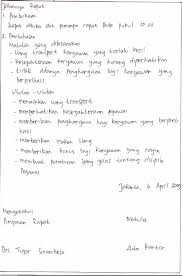 Jalannya Rapat
1. Pembukaan
Rapat dibuka oleh pemimpin rapat pada pukul 10.00
2. Pembahasan
Masalah yang dibicarakan
- Uang transport karyawan yang terlalu kecil
- Kesejahteraan karyawan yang kurang diperhatikan
- tidak adanya penghargaan bagi karyawan yang
berprestasi
Usulan - Usulan
- menaikkan uang transport
- memperhatikan kesejahteraan pegawai
- memberikan penghargaan bagi karyawan yang berpres-
tasi
- memberikan makan siang
- memberikan bonus bagi karyawan yang
- membuat peraturan yang jelas tentang disiplin
pegawai
Jakarta, 6 April
Mengetahui
Pimpinan Rapat Notulis
Drs Tigor Ada Kantor